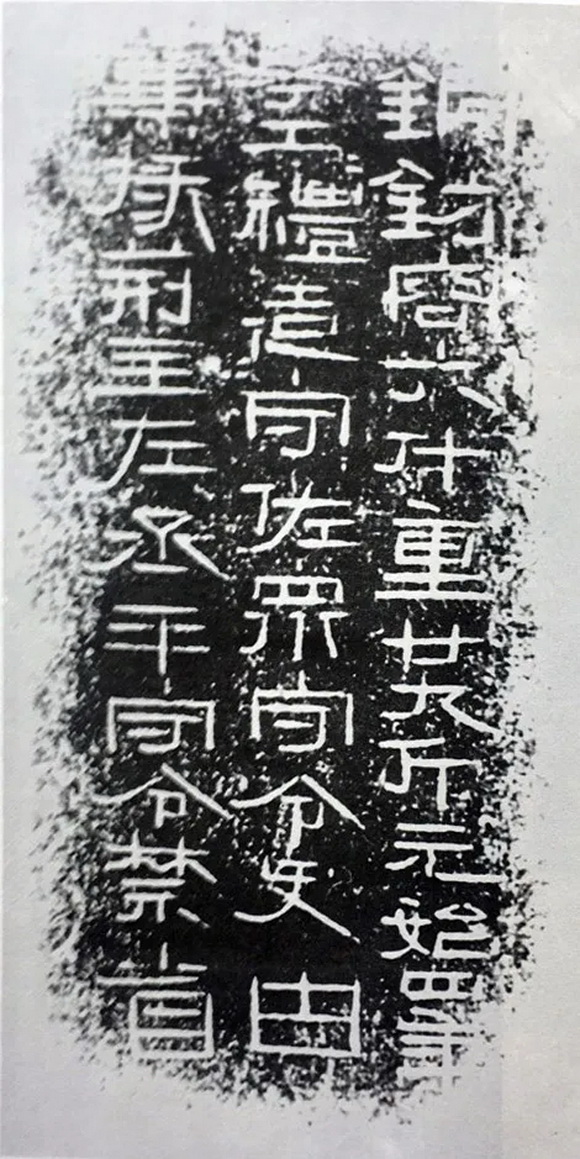 銅鈁容六斗重廿九斤元始四年
考工禮造守佐眾守令史由
兼掾荊主左丞平守令禁省